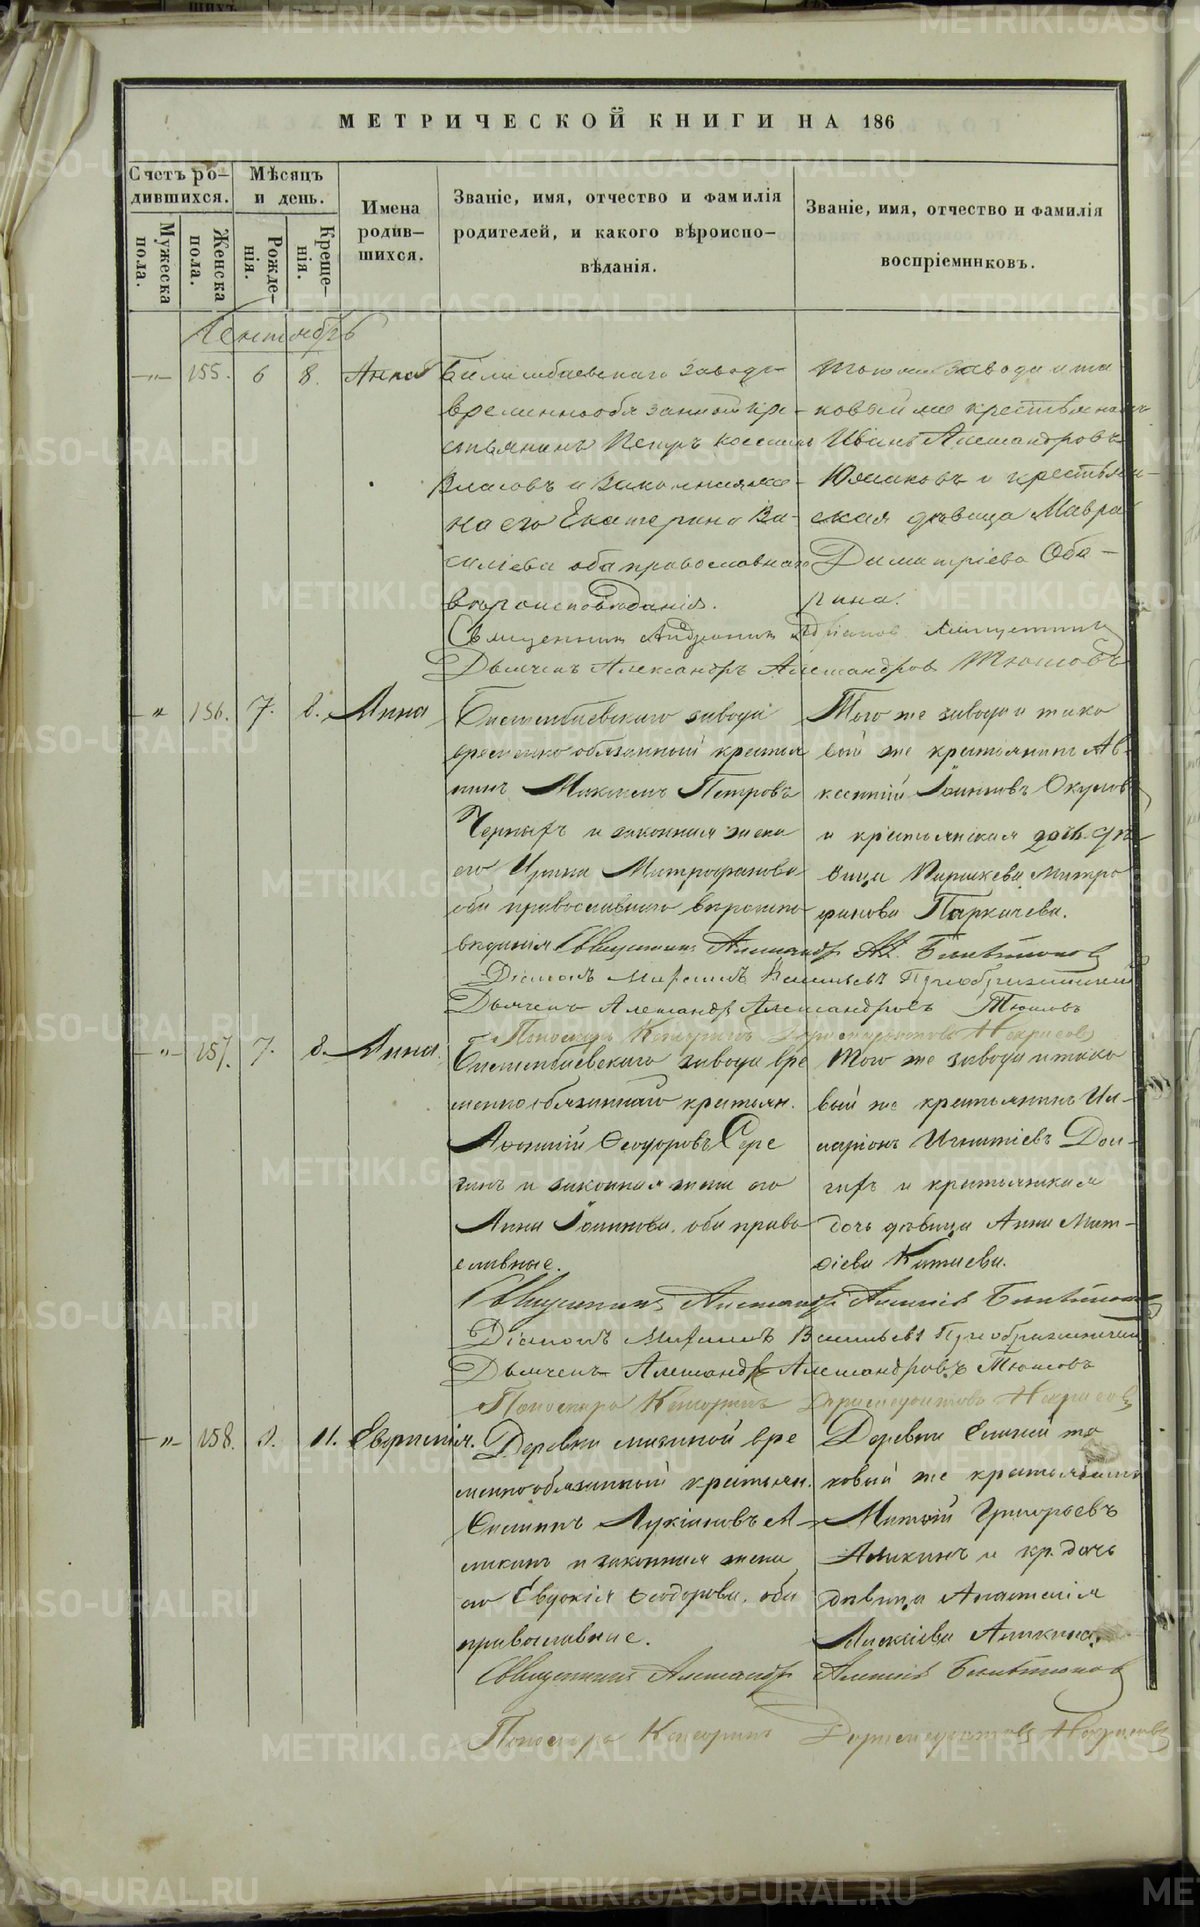 МЕТРИЧЕСКОЙ КНИГИ НА 186
Счетъ ро-
дившихся.
Мѣсяцъ
и день.
Имена
родив-
шихся.
Званіе, имя, отчество и фамилія
родителей, и какого вѣроиспо-
вѣданія.
Званіе, имя, отчество и фамилія
воспріемниковъ.
Мужеска
пола.
Женска
пола.
Рожде-
нія.
Креще-
нія.
Сентябрь
155. 6 8. Анна
Билимбаевскаго завода
временнообязанный кре-
стьянинъ Петръ
Власовъ и законная же-
на его Екатерина Ва-
силіева оба православнаго
вѣроисповѣданія.
Тогоже завода и та-
ковый же крестьянинъ
Иванъ Александровъ
Южаковъ и крестьян-
ская дѣвица Мавра
Димитріева Оба-
рина.
Священникъ
Дьячекъ Александръ Александровъ Тюшовъ
156. 7. 8. Анна
Билимбаевскаго завода
временно обязанный крестья
нинъ Максимъ Петровъ
Черныхъ и законная жена
его Ирина Митрофанова
оба православнаго вѣроиспо-
вѣданія
Того же завода и тако
вый же крестьянинъ Ав-
ксентій Іоанновъ Окуловъ
и крестьянская дочь дѣ-
вица Параскева Митро
фанова Паркачева.
Священникъ Александръ
Діаконъ Васильевъ Преображенскій
Дьячекъ Александръ Александровъ Тюшовъ
Пономарь Некрасовъ
157. 7. 8. Анна.
Билимбаевскаго завода вре
меннообязаннаго крестьян.
Ѳеодоровъ Сере
гинъ и законная жена его
Анна Іоаннова, оба право
славные.
Того же завода и тако
вый же крестьянинъ Ил-
ларіонъ Игнатіевъ Дол-
гихъ и крестьянская
дочь дѣвица Анна Мат-
ѳіева Катаева.
Священникъ Александръ Алексіевъ
Діаконъ Васильевъ Преображенскій
Дьячекъ Александръ Александровъ Тюшовъ
Пономарь Некрасовъ
158. 9. 11. Евфимія.
Деревни вре
меннообязанный крестьян.
Лукіановъ А-
ликинъ и законная жена
его Евдокія Ѳеодорова, оба
православные.
Деревни та
ковый же крестьянинъ
Матѳій Григорьевъ
Аликинъ и кр. дочь
дѣвица Анастасія
Алексіева Аликина.
Священникъ Александръ Алексіевъ
Пономарь Некрасовъ
METRIKI.GASO-URAL.RU